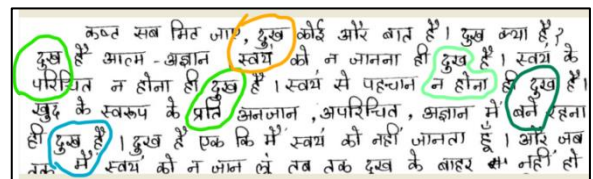 कष्ट सब मिट जाए, दुख कोई और बात है। दुख क्या है?
दुख है आत्म-अज्ञान स्वयं को न जानना ही दुख है। स्वयं के
परिचित न होना ही दुख है। स्वयं से पहचान न होना ही दुख है।
खुद के स्वरूप के प्रति अनजान, अपरिचित, अज्ञान में बने रहना
ही दुख है। दुख है एक कि मैं स्वयं को नहीं जानता हूँ। और जब
तक मैं स्वयं को न जान लूं तब तक दुख के बाहर नहीं हो